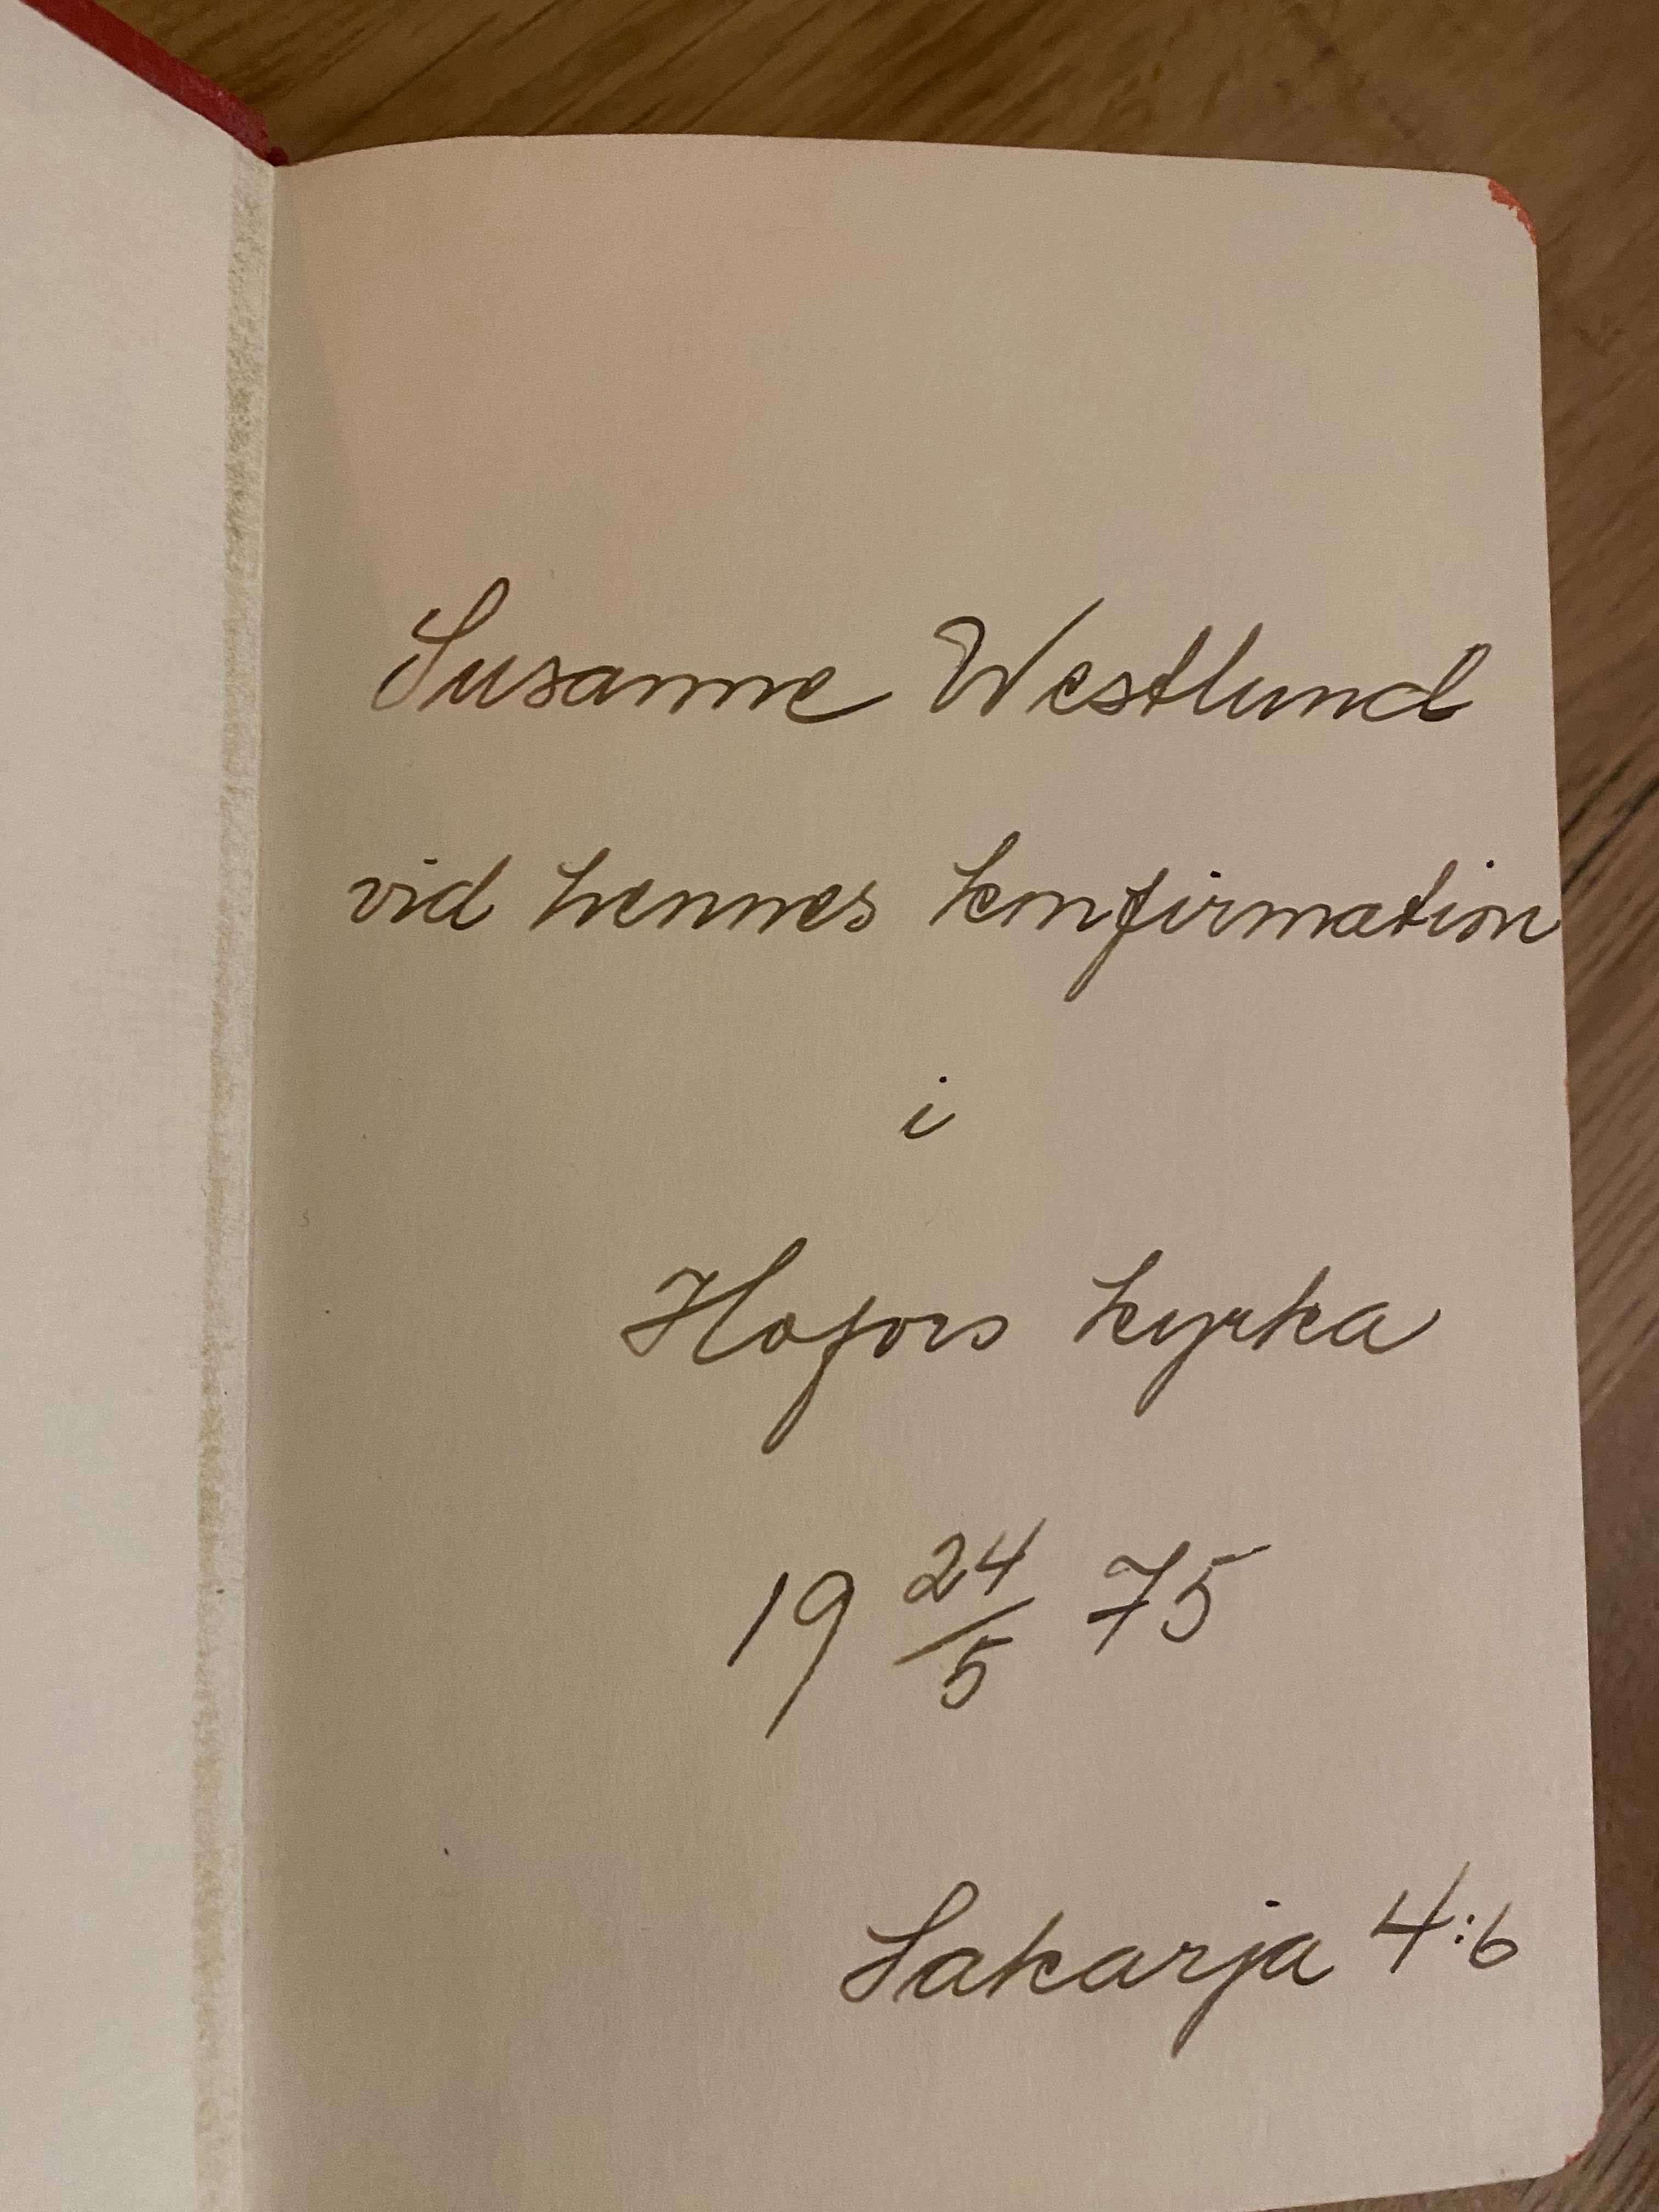 Susanne Westlund
vid hennes konfirmation
i
Hofors kyrka
19 24/5 75
Sakarja 4:6